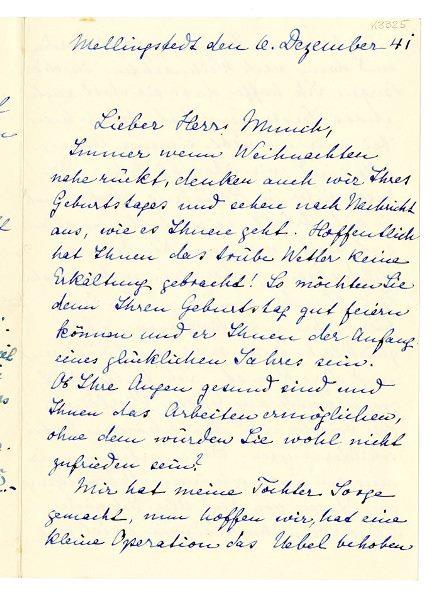 K3325
Mellingstedt den 6. Dezember 41
Lieber Herr Munch,
Immer wenn Weihnachten
nahe rückt, denken auch wir Ihres
Geburtstages und sehen nach Nachricht
aus, wie es Ihnen geht. Hoffentlich
hat Ihnen das trübe Wetter keine
Erkältung gebracht! So möchten Sie
denn Ihren Geburtstag gut feiern
können und er Ihnen der Anfang
eines glücklichen Jahres sein.
Ob Ihre Augen gesund sind und
Ihnen das Arbeiten ermöglichen,
ohne dem würden Sie wohl nicht
zufrieden sein?
Mir hat meine Tochter Sorge
gemacht, nun hoffen wir, hat eine
kleine Operation das Uebel behoben